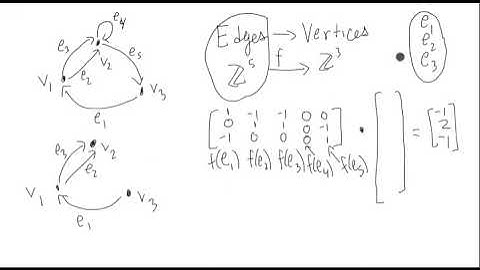 e4
e3
e2
v2
e5
v1
v3
e1
e3
v2
e2
v1
v3
e1
Edges → Vertices
ℤ^5 f→ ℤ^3
e1
e2
e3
[ 1 -1 -1 0 0
0 1 1 0 -1
-1 0 0 0 1 ] • [ ] = [ -1
2
-1 ]
f(e1) f(e2) f(e3) f(e4) f(e5)